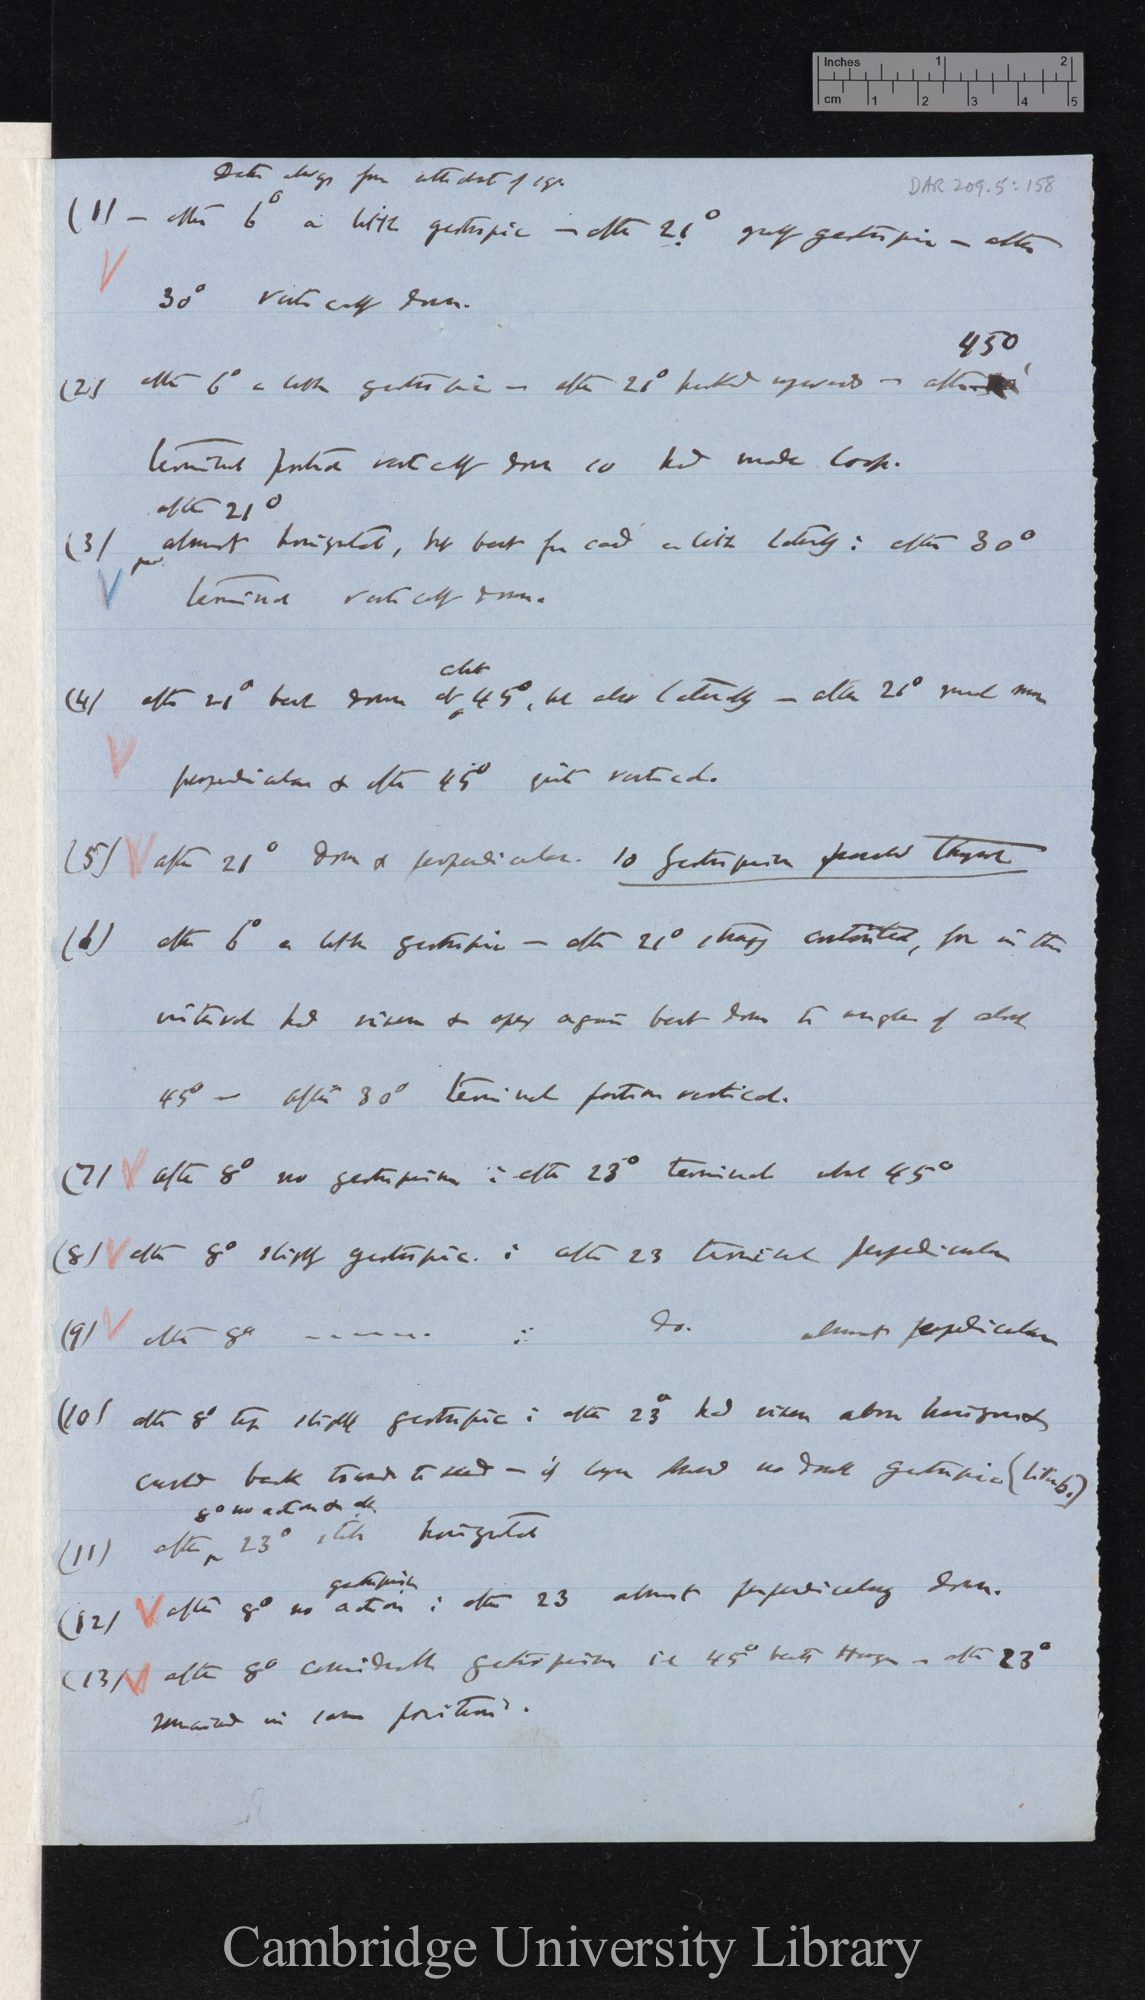 Inches 1 2
cm 1 2 3 4 5
DAR 209.5:158
Dates always from
(1) — after 6° a little geotropic — after 21° greatly geotropic — after
30° vertically down.
450
(2) after 6° a little geotropic — after 21° upwards — after
terminal portion vertically down so had made loop.
after 21°
(3) almost horizontal, but bent from card a little laterally : after 30°
terminal vertically down.
about
(4) after 21° bent down at 45°, but also laterally — after 26° much more
perpendicular & after 45° quite vertical.
(5) after 21° down & perpendicular. so Geotropism
(6) after 6° a little geotropic — after 21° strongly contorted, for in this
interval had risen & apex again bent down to angle of about
45° — after 30° terminal portion vertical.
(7) after 8° no geotropism : after 23° terminal about 45°
(8) after 8° slightly geotropic. : after 23 terminal perpendicular
(9) after 8° ------ : do. almost perpendicular
(10) after 8° tip slightly geotropic : after 23° had risen above horizon &
curled back towards the seed — is no doubt geotropic
8° no action & after
(11) after 23° still horizontal
geotropism
(12) after 8° no action : after 23 almost perpendicularly down.
(13) after 8° considerable geotropism ie 45° beneath Horizon — after 23°
remained in same position.
Cambridge University Library